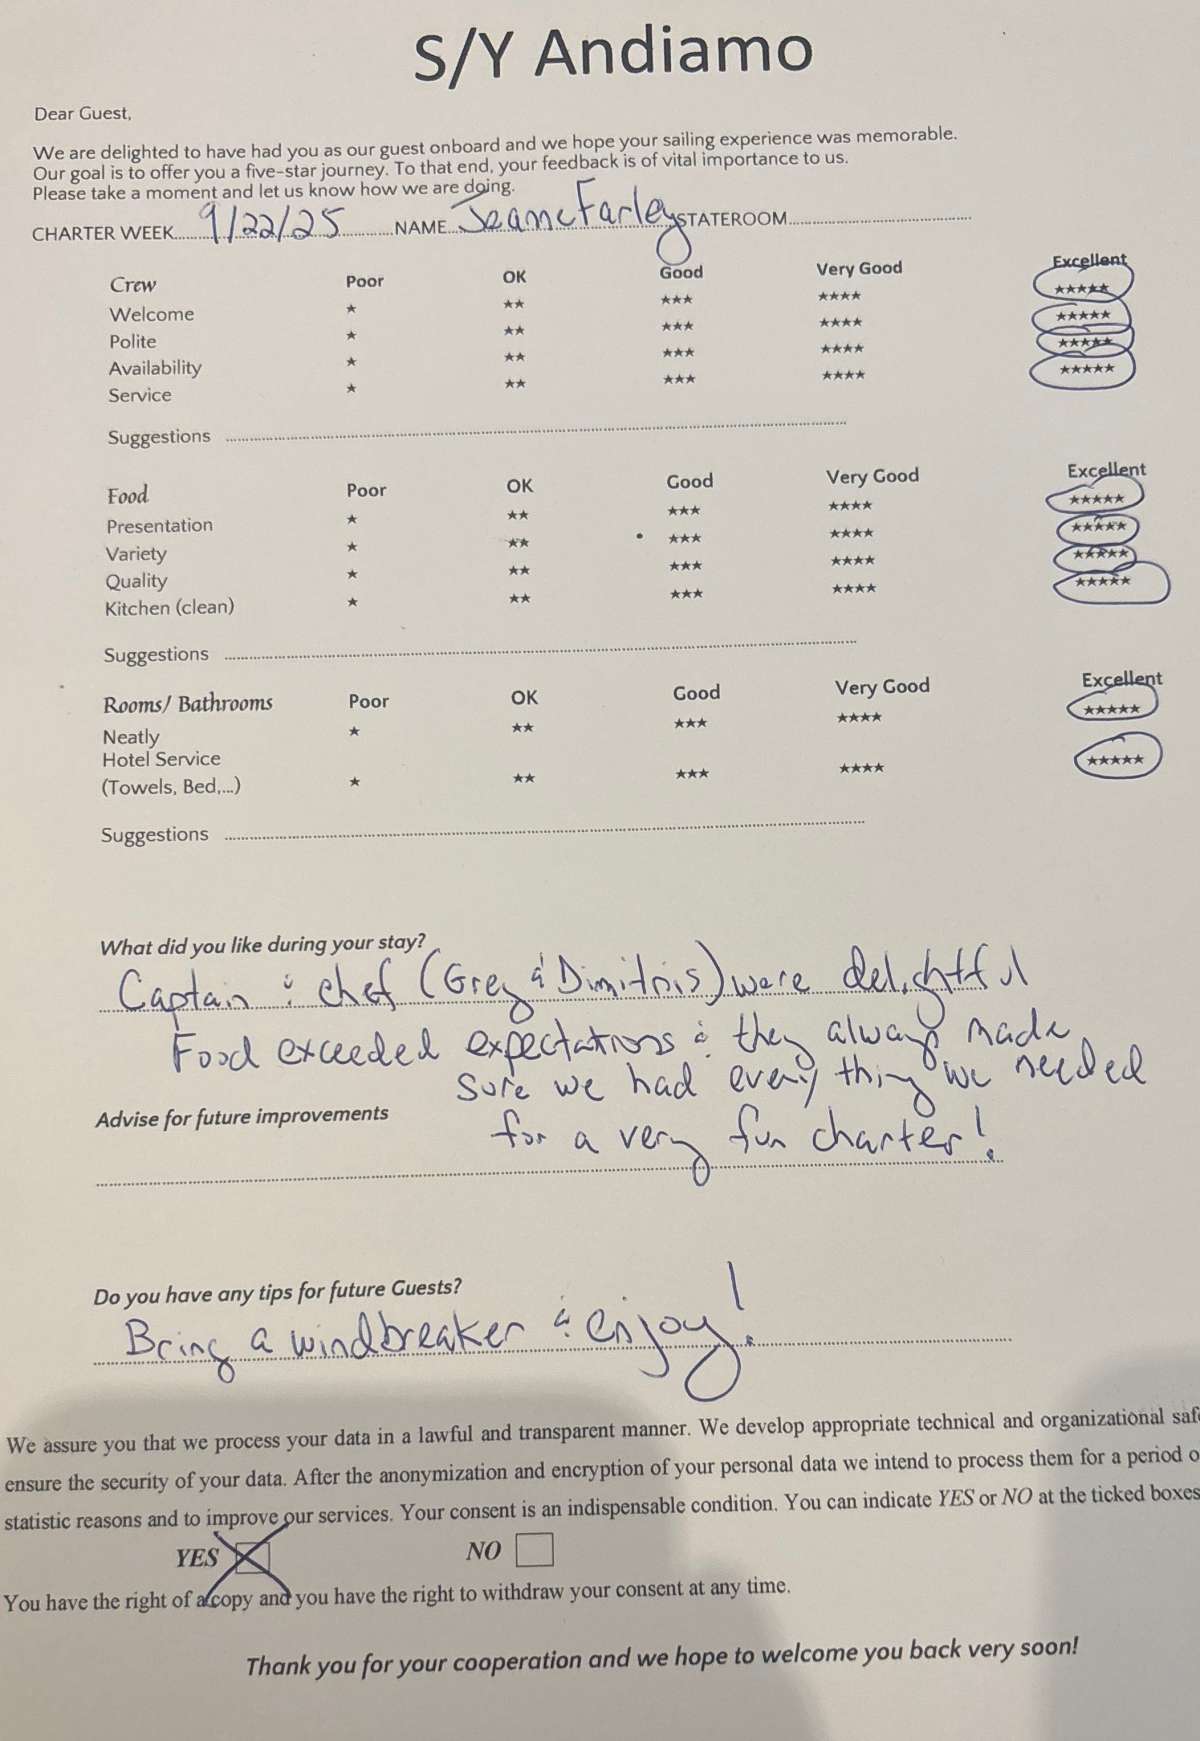 S/Y Andiamo
Dear Guest,
We are delighted to have had you as our guest onboard and we hope your sailing experience was memorable.
Our goal is to offer you a five-star journey. To that end, your feedback is of vital importance to us.
Please take a moment and let us know how we are doing.
CHARTER WEEK 9/22/25 NAME Jeanne Farley STATEROOM
Crew Poor OK Good Very Good Excellent
Welcome ★ ★★ ★★★ ★★★★ ★★★★★
Polite ★ ★★ ★★★ ★★★★ ★★★★★
Availability ★ ★★ ★★★ ★★★★ ★★★★★
Service ★ ★★ ★★★ ★★★★ ★★★★★
Suggestions
Food Poor OK Good Very Good Excellent
Presentation ★ ★★ ★★★ ★★★★ ★★★★★
Variety ★ ★★ ★★★ ★★★★ ★★★★★
Quality ★ ★★ ★★★ ★★★★ ★★★★★
Kitchen (clean) ★ ★★ ★★★ ★★★★ ★★★★★
Suggestions
Rooms/ Bathrooms Poor OK Good Very Good Excellent
Neatly ★ ★★ ★★★ ★★★★ ★★★★★
Hotel Service
(Towels, Bed,...) ★ ★★ ★★★ ★★★★ ★★★★★
Suggestions
What did you like during your stay?
Captain & chef (Greg & Dimitris) were delightful
Food exceeded expectations & they always made
sure we had every thing we needed
Advise for future improvements
for a very fun charter!
Do you have any tips for future Guests?
Bring a windbreaker & enjoy!
We assure you that we process your data in a lawful and transparent manner. We develop appropriate technical and organizational safe
ensure the security of your data. After the anonymization and encryption of your personal data we intend to process them for a period o
statistic reasons and to improve our services. Your consent is an indispensable condition. You can indicate YES or NO at the ticked boxes
YES NO
You have the right of a copy and you have the right to withdraw your consent at any time.
Thank you for your cooperation and we hope to welcome you back very soon!